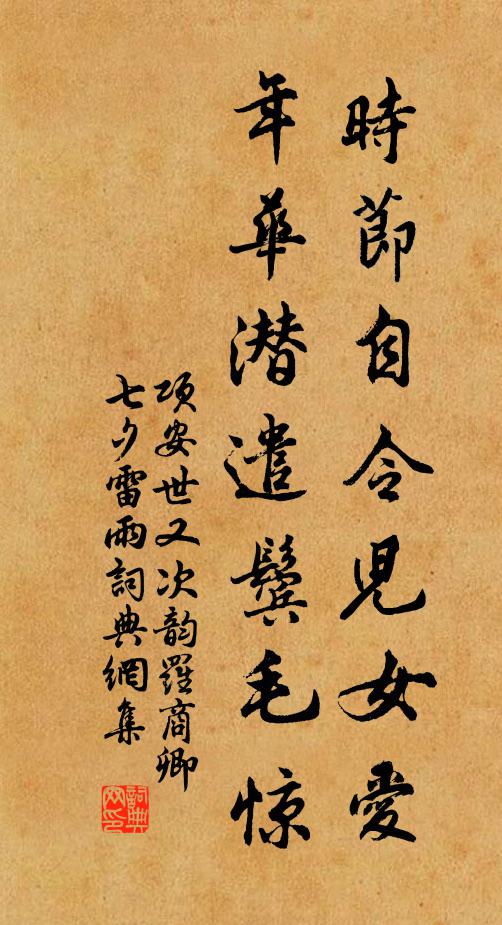 時節自令兒女愛
年華潜遣鬓毛惊
项安世又次韵羅商卿
七夕雷雨詞典網集
詞典
网印